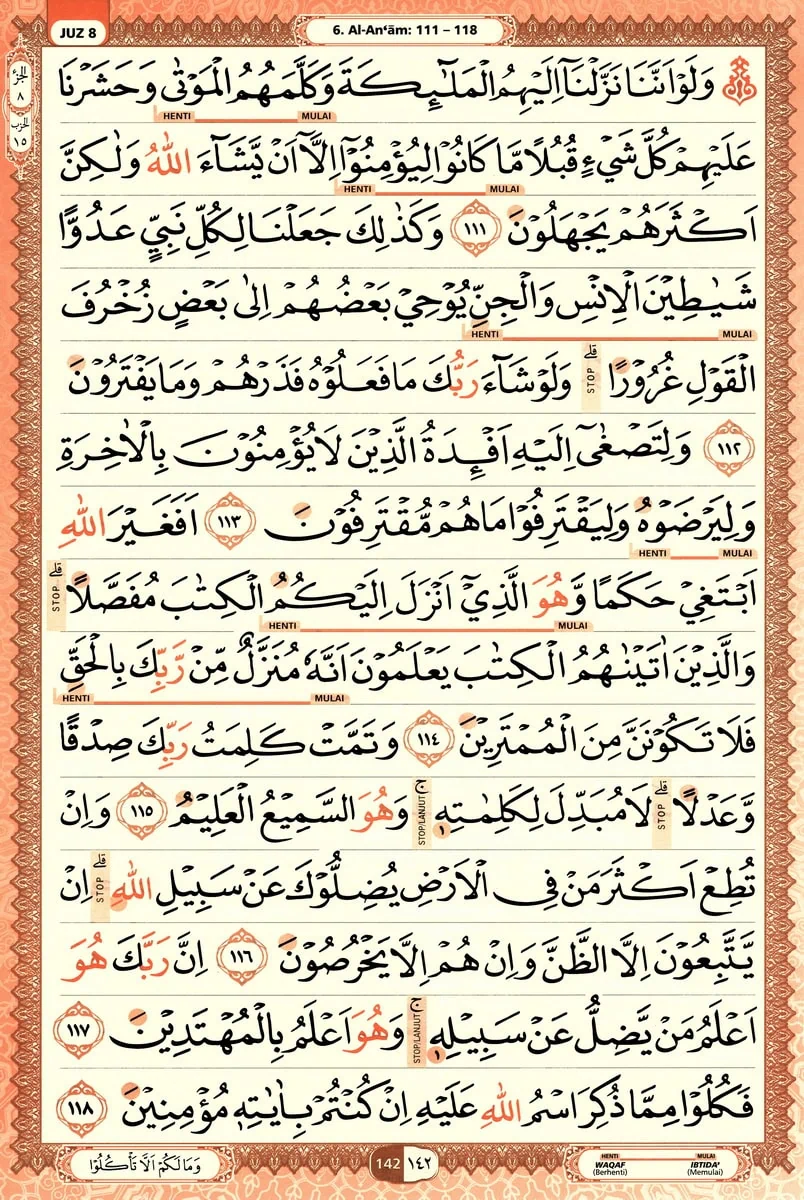 JUZ 8
6. Al-An‘ām: 111 – 118
الجزء
٨
الحزب
١٥
وَلَوْ اَنَّنَا نَزَّلْنَآ اِلَيْهِمُ الْمَلٰۤىِٕكَةَ وَكَلَّمَهُمُ الْمَوْتٰى وَحَشَرْنَا
HENTI MULAI
عَلَيْهِمْ كُلَّ شَيْءٍ قُبُلًا مَّا كَانُوْا لِيُؤْمِنُوْٓا اِلَّآ اَنْ يَّشَاۤءَ اللّٰهُ وَلٰكِنَّ
HENTI MULAI
اَكْثَرَهُمْ يَجْهَلُوْنَ ١١١ وَكَذٰلِكَ جَعَلْنَا لِكُلِّ نَبِيٍّ عَدُوًّا
شَيٰطِيْنَ الْاِنْسِ وَالْجِنِّ يُوْحِيْ بَعْضُهُمْ اِلٰى بَعْضٍ زُخْرُفَ
HENTI MULAI
الْقَوْلِ غُرُوْرًا ۗ STOP وَلَوْ شَاۤءَ رَبُّكَ مَا فَعَلُوْهُ فَذَرْهُمْ وَمَا يَفْتَرُوْنَ
١١٢ وَلِتَصْغٰٓى اِلَيْهِ اَفْـِٕدَةُ الَّذِيْنَ لَا يُؤْمِنُوْنَ بِالْاٰخِرَةِ
وَلِيَرْضَوْهُ وَلِيَقْتَرِفُوْا مَا هُمْ مُّقْتَرِفُوْنَ ١١٣ اَفَغَيْرَ اللّٰهِ
HENTI MULAI
اَبْتَغِيْ حَكَمًا وَّهُوَ الَّذِيْٓ اَنْزَلَ اِلَيْكُمُ الْكِتٰبَ مُفَصَّلًا ۗ STOP
HENTI MULAI
وَالَّذِيْنَ اٰتَيْنٰهُمُ الْكِتٰبَ يَعْلَمُوْنَ اَنَّهٗ مُنَزَّلٌ مِّنْ رَّبِّكَ بِالْحَقِّ
HENTI MULAI
فَلَا تَكُوْنَنَّ مِنَ الْمُمْتَرِيْنَ ١١٤ وَتَمَّتْ كَلِمَتُ رَبِّكَ صِدْقًا
وَّعَدْلًا ۗ STOP لَا مُبَدِّلَ لِكَلِمٰتِهٖ ۚ STOP/LANJUT وَهُوَ السَّمِيْعُ الْعَلِيْمُ ١١٥ وَاِنْ
تُطِعْ اَكْثَرَ مَنْ فِى الْاَرْضِ يُضِلُّوْكَ عَنْ سَبِيْلِ اللّٰهِ ۗ STOP اِنْ
يَّتَّبِعُوْنَ اِلَّا الظَّنَّ وَاِنْ هُمْ اِلَّا يَخْرُصُوْنَ ١١٦ اِنَّ رَبَّكَ هُوَ
اَعْلَمُ مَنْ يَّضِلُّ عَنْ سَبِيْلِهٖ ۚ STOP/LANJUT وَهُوَ اَعْلَمُ بِالْمُهْتَدِيْنَ ١١٧
فَكُلُوْا مِمَّا ذُكِرَ اسْمُ اللّٰهِ عَلَيْهِ اِنْ كُنْتُمْ بِاٰيٰتِهٖ مُؤْمِنِيْنَ ١١٨
وَمَا لَكُمْ اَلَّا تَأْكُلُوْا
142 ١٤٢
HENTI MULAI
WAQAF IBTIDA’
(Berhenti) (Memulai)